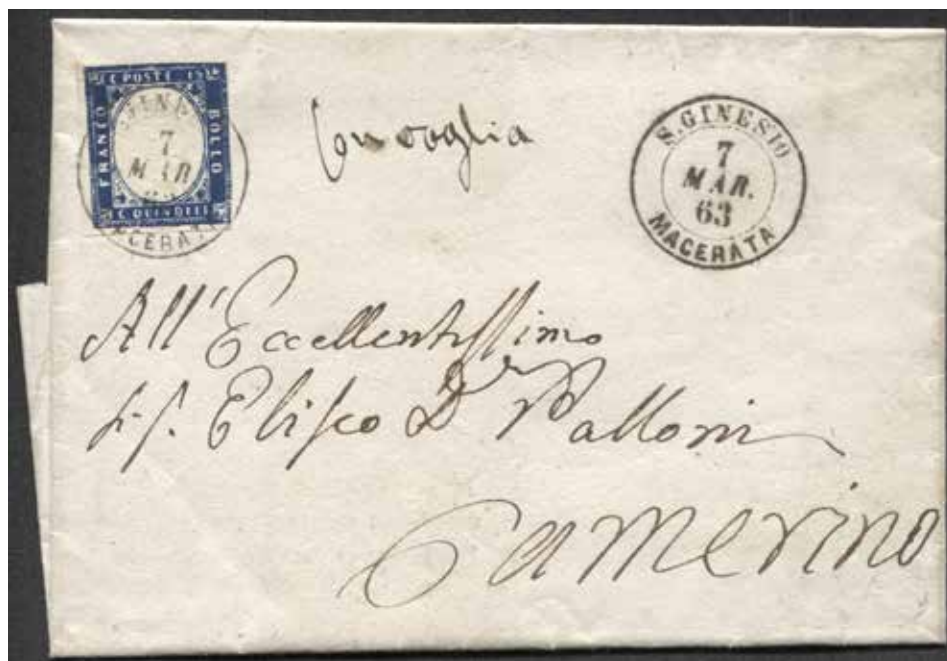 C. POSTE 15
FRANCO
BOLLO
C. QUINDICI
7
MAR
con soglia
S. GINESIO
7
MAR.
63
MACERATA
All' Eccellentissimo
Sig. Eliseo Dr Palloni
Camerino